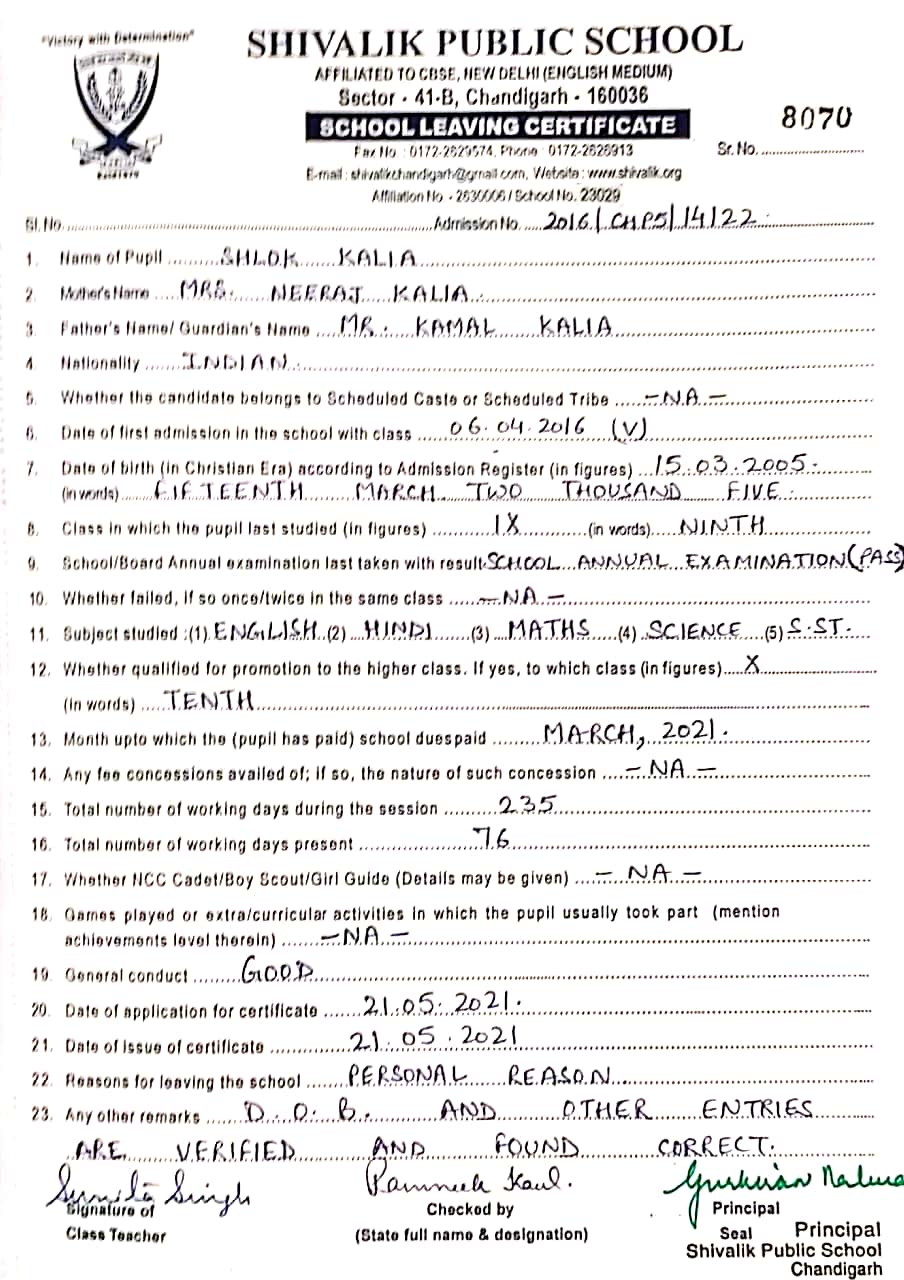 "Victory with Determination"
SHIVALIK PUBLIC SCHOOL
AFFILIATED TO CBSE, NEW DELHI (ENGLISH MEDIUM)
Sector - 41-B, Chandigarh - 160036
SCHOOL LEAVING CERTIFICATE
8070
Fax No : 0172-2629574, Phone : 0172-2626913
Sr. No.
E-mail : shivalikchandigarh@gmail.com, Website : www.shivalik.org
Affiliation No - 2630006 / School No. 23029
Sl. No. Admission No. 2016/CHPS/14/22.
1. Name of Pupil SHLOK KALIA
2. Mother's Name MRS. NEERAJ KALIA.
3. Father's Name/ Guardian's Name MR. KAMAL KALIA
4. Nationality INDIAN.
5. Whether the candidate belongs to Scheduled Caste or Scheduled Tribe -NA-
6. Date of first admission in the school with class 06.04.2016 (V)
7. Date of birth (in Christian Era) according to Admission Register (in figures) 15.03.2005.
(in words) FIFTEENTH MARCH TWO THOUSAND FIVE.
8. Class in which the pupil last studied (in figures) IX (in words) NINTH
9. School/Board Annual examination last taken with result SCHOOL ANNUAL EXAMINATION (PASS)
10. Whether failed, if so once/twice in the same class -NA-
11. Subject studied :(1) ENGLISH (2) HINDI (3) MATHS (4) SCIENCE (5) S.ST.
12. Whether qualified for promotion to the higher class. If yes, to which class (in figures) X
(in words) TENTH
13. Month upto which the (pupil has paid) school duespaid MARCH, 2021.
14. Any fee concessions availed of; if so, the nature of such concession -NA-
15. Total number of working days during the session 235
16. Total number of working days present 76
17. Whether NCC Cadet/Boy Scout/Girl Guide (Details may be given) - NA -
18. Games played or extra/curricular activities in which the pupil usually took part (mention
achievements level therein) -NA-
19. General conduct GOOD
20. Date of application for certificate 21.05.2021.
21. Date of issue of certificate 21.05.2021
22. Reasons for leaving the school PERSONAL REASON
23. Any other remarks D.O.B. AND OTHER ENTRIES
ARE VERIFIED AND FOUND CORRECT.
Sumila Singh Ramneek Kaul.
Signature of Checked by Principal
Class Teacher (State full name & designation) Seal Principal
Shivalik Public School
Chandigarh